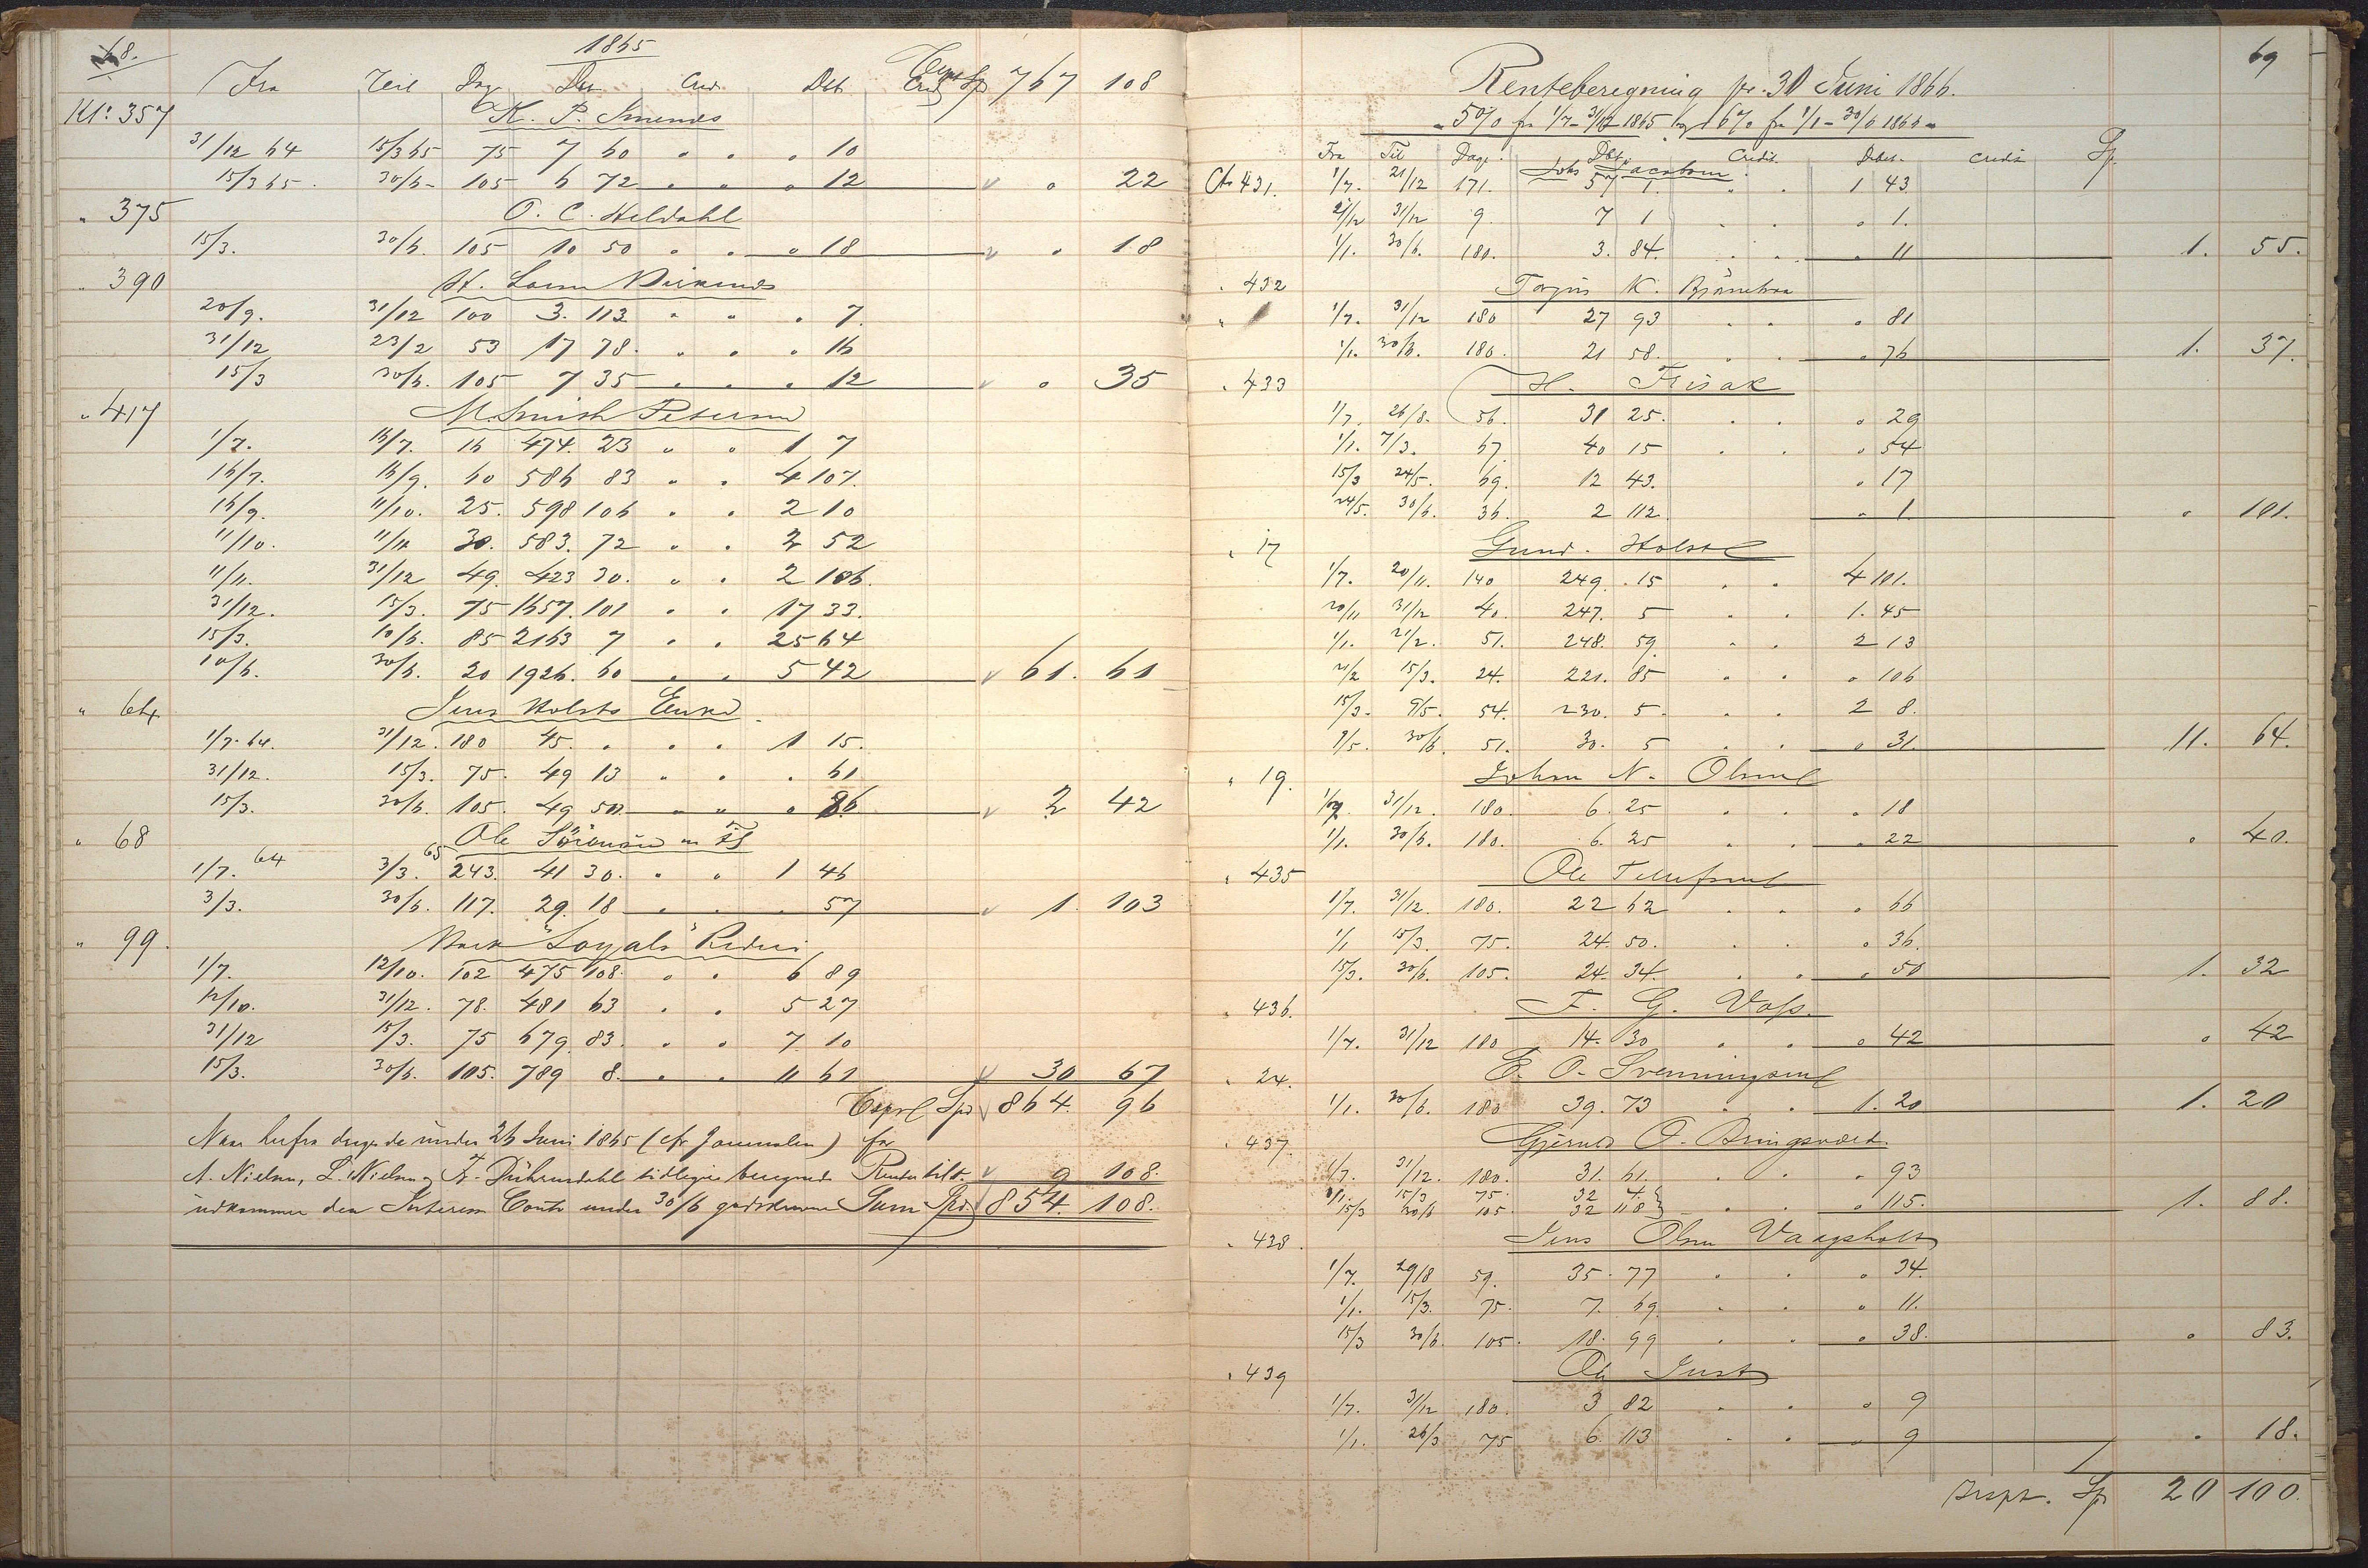 68.
1865
Transp Sp 767 108
Fra Teil Dag Deb Cred. Deb Cred
Kto 357 K. P.
31/12 64 15/3 65 75 7 60 " " " 10
15/3 65. 30/6 - 105 6 72 " " " 12 " 22
" 375 O. C. Heldahl
15/3. 30/6. 105 10 50 " " " 18 " 18
" 390 H. Lassen
20/9. 31/12 100 3. 113 " " " 7.
31/12 23/2 53 17 78. " " " 16
15/3 30/6. 105 7 35 " " " 12 " 35
" 417 M. Smith Petersen
1/7. 16/7. 16 474. 23 " " 1 7
16/7. 16/9. 60 586 83 " " 4 107.
16/9. 11/10. 25. 598 106 " " 2 10
11/10. 11/11 30. 583. 72 " " 2 52
11/11. 31/12 49. 423 30. " " 2 106.
31/12. 15/3. 75 1657. 101 " " 17 33.
15/3. 10/6. 85 2163 7 " " 25 64
10/6. 30/6. 20 1926. 60 " " 5 42 61. 61
" 64 Jens Holsts Enke
1/7. 64. 31/12. 180 45. " " " 1 15.
31/12. 15/3. 75. 49 13 " " " 61
15/3. 30/6. 105. 49 50. " " " 86 2 42
" 68 Ole Sörensen
1/7. 64 3/3. 65 243. 41 30. " " 1 46
3/3. 30/6. 117. 29. 18 " " " 57 1. 103
" 99. Bark "Loyals" Rederi
1/7. 12/10. 102 475 108. " " 6 89
12/10. 31/12. 78. 481 63 " " 5 27
31/12 15/3. 75 679. 83. " " 7. 10
15/3. 30/6. 105. 789 8. " " 11 61 30 67
Transp Spd 864. 96
Naar herfra drages de under 26 Juni 1865 (cfr Journalen) for
A. Nielsen, L. Nielsen og tidligere beregnede Renter tilst. 9 108.
udkommer den Interesse Conto under 30/6 godskrevne Sum Spd. 854. 108.
69
Renteberegning pr. 30 Juni 1866.
5% fra 1/7 - 31/12 1865 og 6% fra 1/1 - 30/6 1866
Fra Til Dage. Debt. Credit. Debet. Credit Sp.
Cto 431. Johs Jacobsen
1/7. 21/12 171. 57 1. " " 1 43
21/12 31/12 9. 7 1 " " " 1.
1/1. 30/6. 180. 3. 84. " " " 11 1. 55.
" 432 Torjus K.
" 1/7. 31/12 180 27 93 " " " 81
1/1. 30/6. 180. 21 58. " " " 76 1. 37.
" 433 H. Frisak
1/7. 26/8. 56. 31 25. " " " 29
1/1. 7/3. 67 40 15 " " " 54
15/3 24/5. 69. 12 43. " 17
24/5. 30/6. 36. 2 112. " 1. " 101.
" 17 Gund. Holst
1/7. 20/11. 140 249. 15 " " 4 101.
20/11 31/12 40. 247. 5 " " 1. 45
1/1. 21/2. 51. 248. 59. " " 2 13
21/2 15/3. 24. 221. 85 " " " 106
15/3. 9/5. 54. 230. 5 " " 2 8.
9/5. 30/6. 51. 30. 5 " " " 31. 11. 64.
" 19. Johan N. Olsens
1/7. 31/12. 180. 6. 25 " " " 18
1/1. 30/6. 180. 6. 25 " " " 22 " 40.
" 435 Ole Tellefsens
1/7. 31/12. 180. 22 62 " " " 66
1/1 15/3. 75. 24. 50. " " " 36.
15/3. 30/6. 105. 24. 34. " " " 50 1. 32
" 436. F. G. Voss.
1/7. 31/12 180 14. 30 " " " 42 " 42
" 24. E. O. Svenningsens
1/1. 30/6. 180 39. 73 " " 1. 20 1. 20
" 437. Gjerulv O. Bringsværd.
1/7. 31/12. 180. 31. 61. " " " 93
1/1. 15/3 75. 32 4.
15/3 30/6 105. 32 118 " " " 115. 1. 88.
" 438. Jens Olsen Vaagsholt
1/7. 29/8 59. 35. 77 " " " 34.
1/1. 15/3. 75. 7. 69. " " " 11.
15/3 30/6. 105. 18. 99 " " " 38. " 83.
" 439 Ole Just
1/7. 31/12 180. 3 82 " " " 9
1/1. 26/3 75 6. 113 " " " 9 " 18.
Trspt. Sp 20 100.